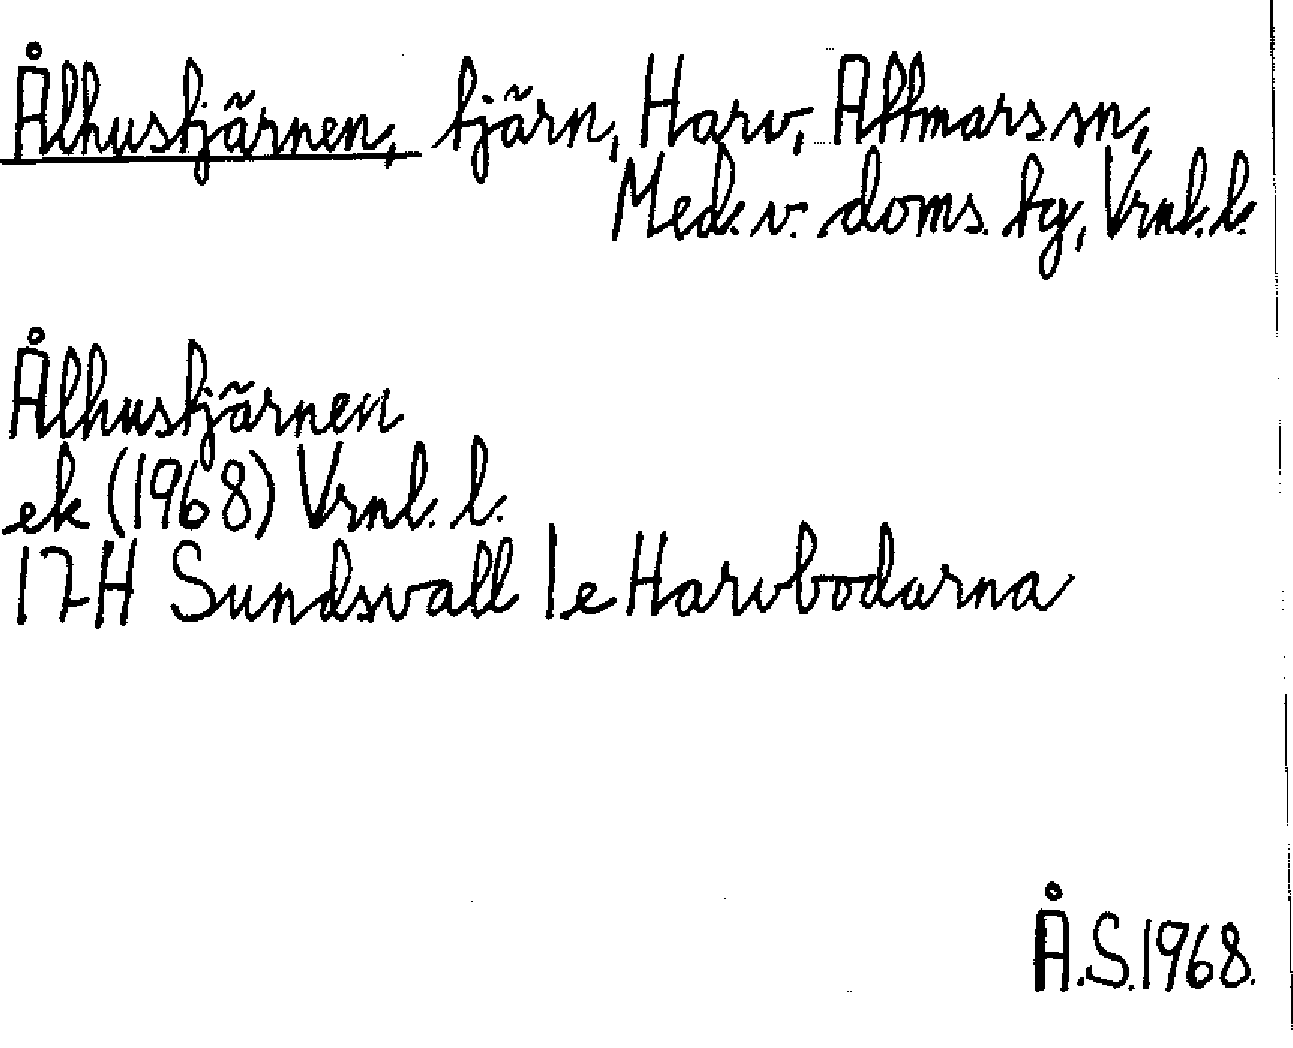 Ålhustjärnen, tjärn, Harv, Attmars sn,
Med. v. doms. tg, Vrnl. l.
Ålhustjärnen
ek (1968) Vrnl. l.
17H Sundsvall 1e Harvbodarna
Å.S. 1968.